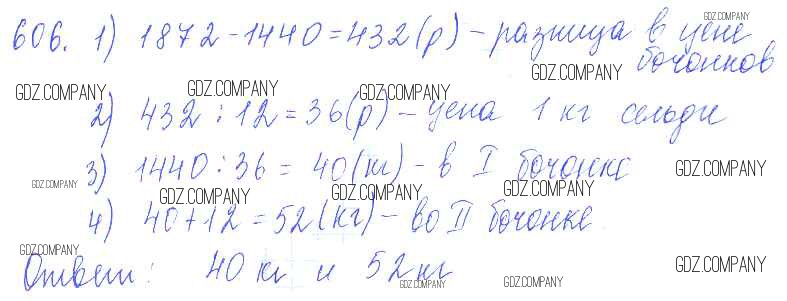 GDZ.COMPANY
606. 1) 1872 - 1440 = 432 (р) - разница в цене
GDZ.COMPANY бочонков
GDZ.COMPANY GDZ.COMPANY GDZ.COMPANY
2) 432 : 12 = 36 (р) - цена 1 кг сельди
3) 1440 : 36 = 40 (кг) - в I бочонке GDZ.COMPANY
GDZ.COMPANY GDZ.COMPANY GDZ.COMPANY GDZ.COMPANY
4) 40 + 12 = 52 (кг) - во II бочонке
GDZ.COMPANY
Ответ: 40 кг и 52 кг GDZ.COMPANY
GDZ.COMPANY GDZ.COMPANY